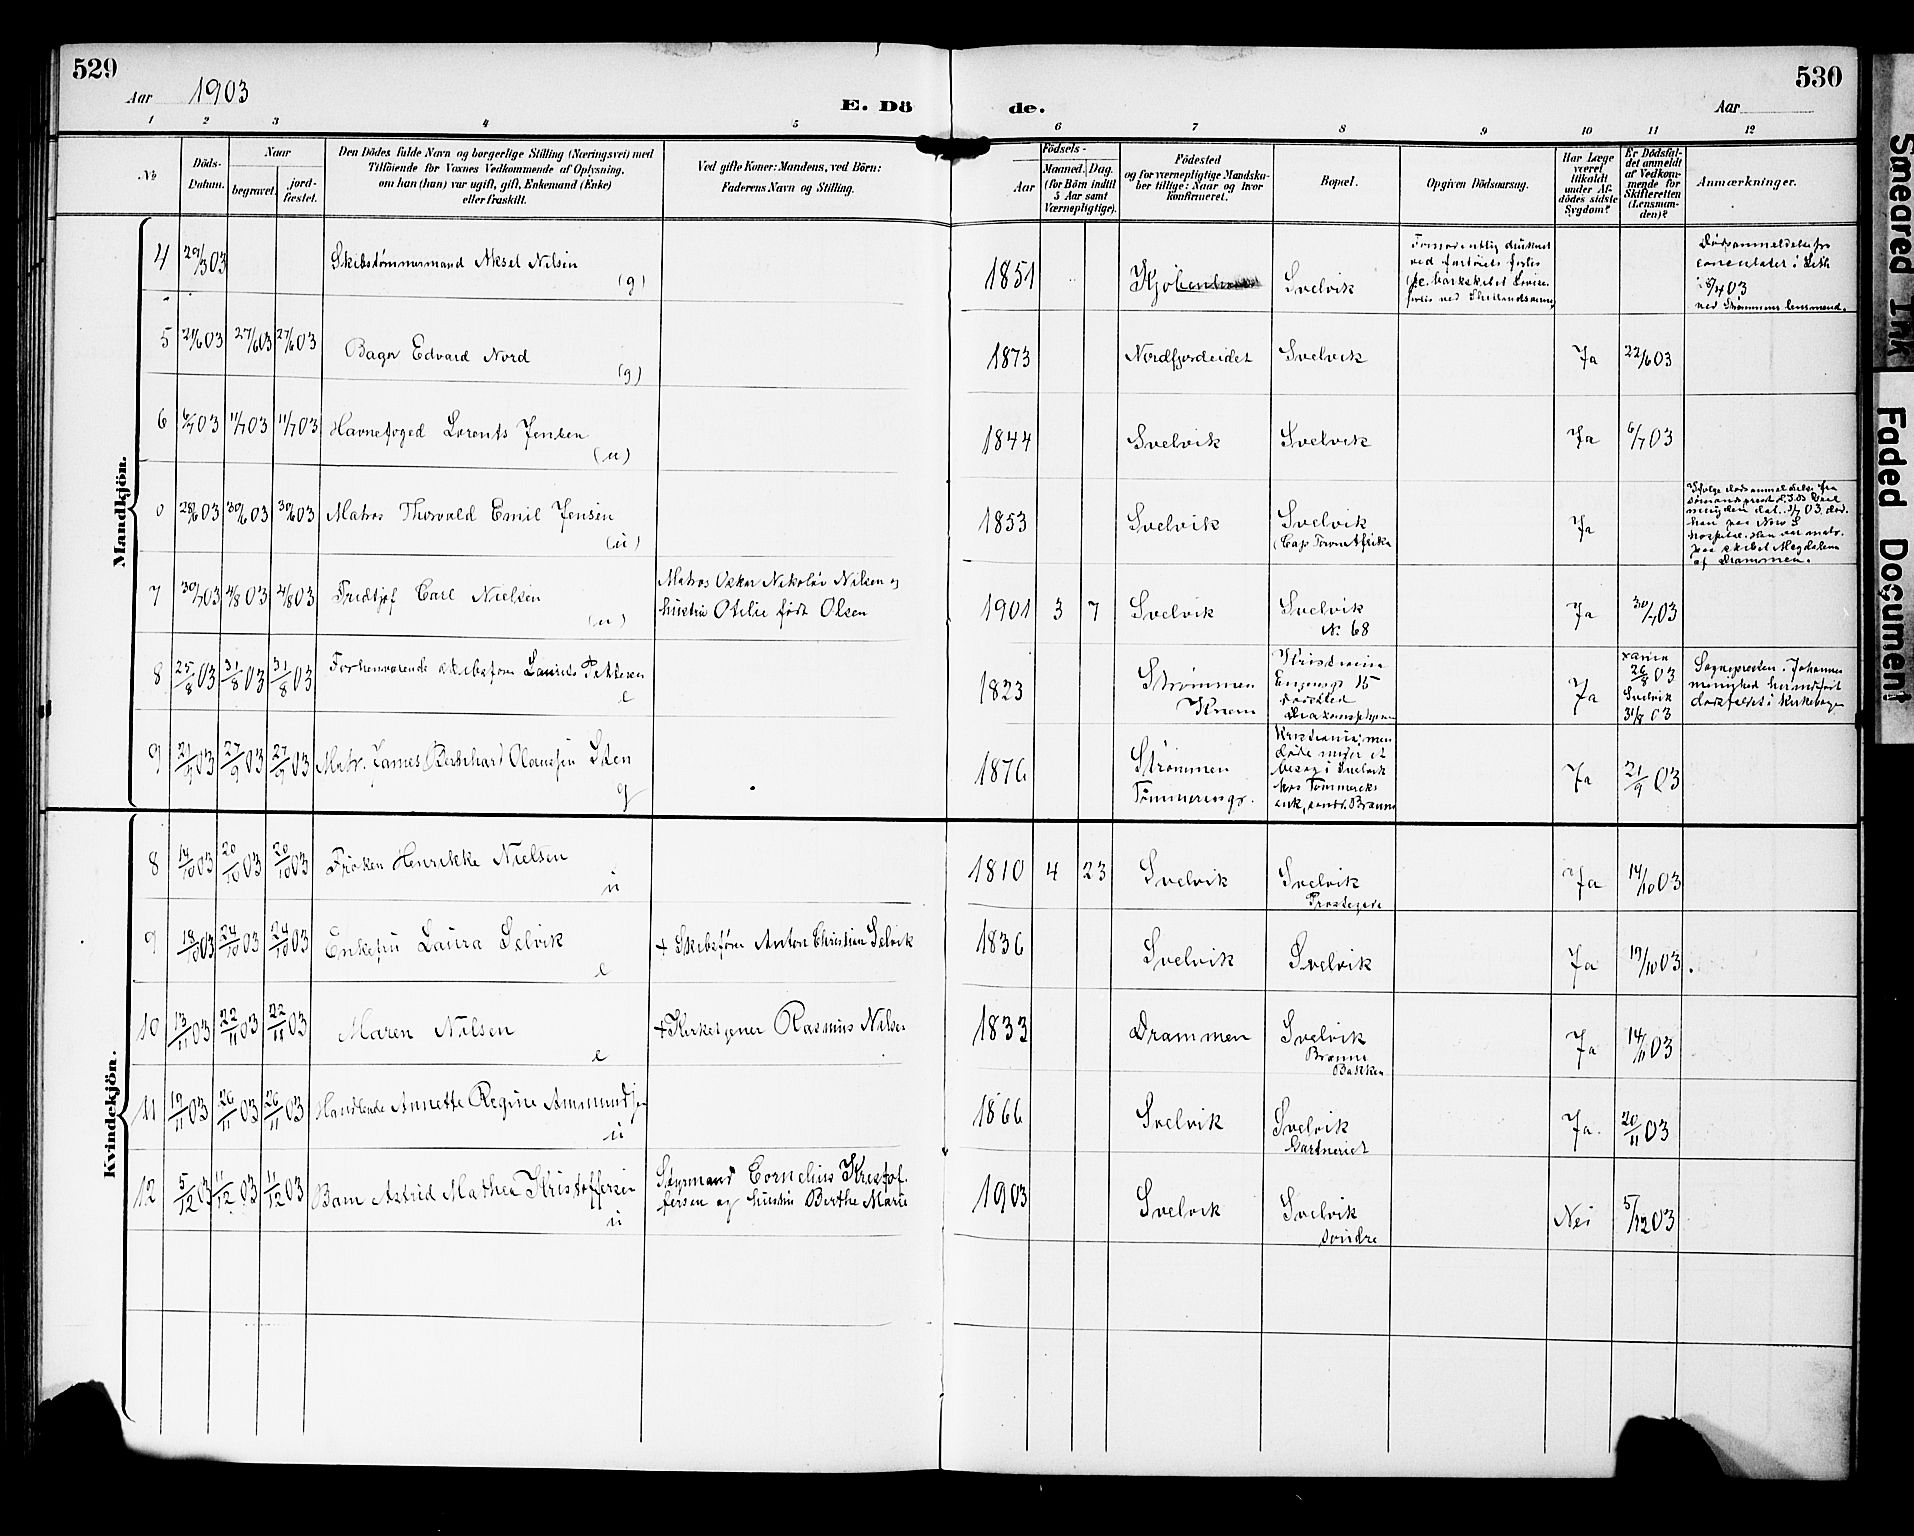 529
Aar 1903
E. Dö
de.
Aar
530
1 2 3 4 5 6 7 8 9 10 11 12
№
Döds-
Datum.
Naar
begravet.
jord-
fæstet.
Den Dödes fulde Navn og borgerlige Stilling (Næringsvei) med
Tilföiende for Voxnes Vedkommende af Oplysning,
om han (hun) var ugift, gift, Enkemand (Enke)
eller fraskilt.
Ved gifte Koner: Mandens, ved Börn:
Faderens Navn og Stilling.
Födsels-
Aar
Maaned. Dag.
(for Börn indtil
5 Aar samt
Værnepligtige).
Födested
og for værnepligtige Mandska-
ber tillige: Naar og hvor
konfirmeret.
Bopæl.
Opgiven Dödsaarsag.
Har Læge
været
tilkaldt
under Af-
dödes sidste
Sygdom?
Er Dödsfal-
det anmeldt
af Vedkom-
mende for
Skifteretten
(Lensman-
den)?
Anmærkninger.
Mandkjön.
4 29/3 03 Skibstømmermand Aksel Nilsen
(g)
1851 Svelvik
Formodentlig druknet
ved fartøiets forlis
Dødsanmeldelse fra
5 21/6 03 27/6 03 27/6 03 Bager Edvard Nord
(g)
1873 Nordfjordeidet Svelvik Ja 22/6 03
6 6/7 03 11/7 03 11/7 03 Havnefoged Lorents Jensen
(u)
1844 Svelvik Svelvik Ja 6/7 03
0 28/6 03 30/6 03 30/6 03 Matros Thorvald Emil Jensen
(u)
1853 Svelvik Svelvik
(Cap Town Afrika
Ja
Ifølge dødsanmeldelse fra
hospital. Han var matr.
paa skibet Magdalena
af Drammen.
7 30/7 03 4/8 03 4/8 03 Fridtjof Carl Nielsen
(u)
Matros Oskar Nikolai Nilsen og
hustru Otilie født Olsen
1901 3 7 Svelvik Svelvik
No 68
Ja 30/7 03
8 25/8 03 31/8 03 31/8 03 Forhenværende skibsfører Laurits Pettersen
e
1823 Strømmen
Kristiania
Ja
26/8 03
Svelvik
31/8 03
Sognepresten i Johannes
menighed
dødsfaldet i kirkebogen
9 21/9 03 27/9 03 27/9 03 Matr. James (Bernhard) Olaussen Sten
g
1876 Strømmen
Kristiania, men
døde under et
besøg i Svelvik
Ja 21/9 03
Kvindekjön.
8 14/10 03 20/10 03 20/10 03 Frøken Henrikke Nielsen
u
1810 4 23 Svelvik Svelvik
Ja 14/10 03
9 18/10 03 24/10 03 24/10 03 Enkefru Laura Selvik
e
+ Skibsfører Anton Christian Selvik
1836 Svelvik Svelvik Ja 19/10 03
10 13/11 03 22/11 03 22/11 03 Maren Nilsen
e
+ Kirketjener Rasmus Nilsen
1833 Drammen Svelvik
Brønne
Bakken
Ja 14/11 03
11 19/11 03 26/11 03 26/11 03 Handlende Annette Regine Ammundsen
u
1866 Svelvik Svelvik
Gartneriet
Ja 20/11 03
12 5/12 03 11/12 03 11/12 03 Barn Astrid Mathea Kristoffersen
u
Styrmand Cornelius Kristof-
fersen og hustru Berthe Marie
1903 Svelvik Svelvik
søndre
Nei 5/12 03
Smeared Ink
Faded Document